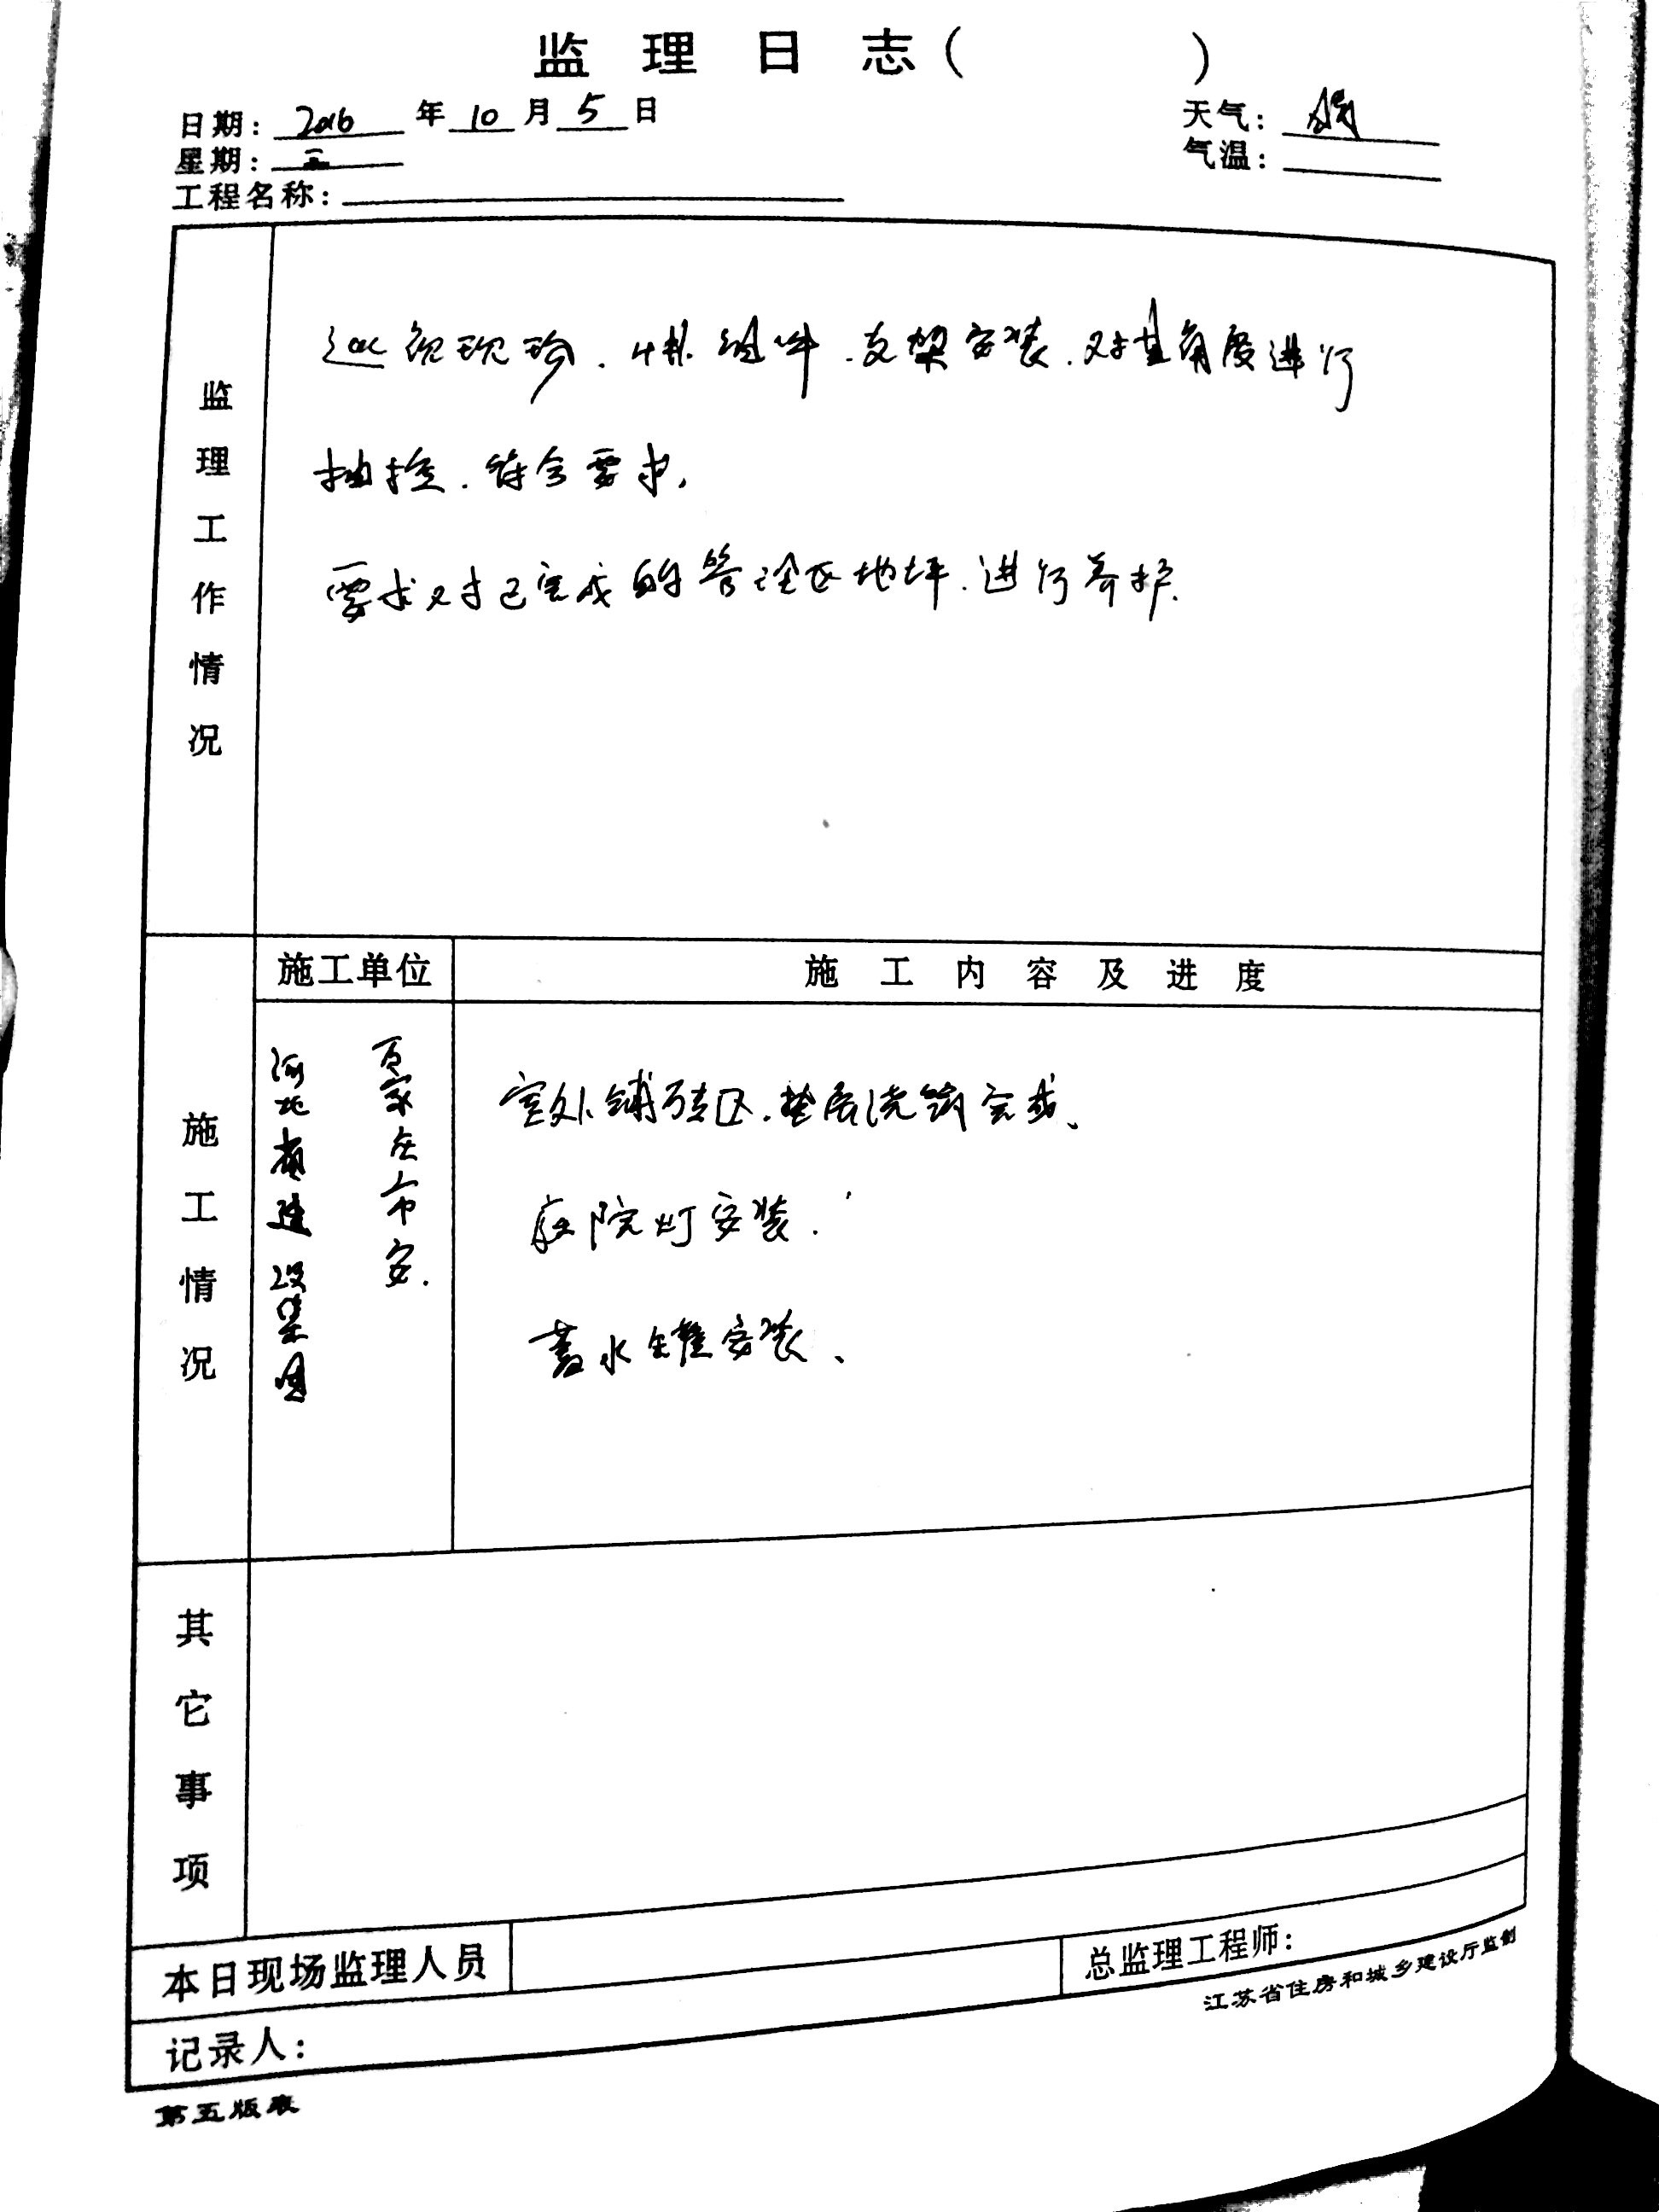 监理日志（ ）
日期： 2016 年 10 月 5 日
天气： 晴
星期： 三
气温：
工程名称：
监理工作情况
巡视现场、组件、支架安装、对其角度进行
抽检、符合要求。
要求对已完成的管理区地坪、进行养护.
施工情况
施工单位
施工内容及进度
河北省建设集团
家庄市安.
室外铺砖区、垫层浇筑完成、
庭院灯安装.
蓄水罐安装、
其它事项
本日现场监理人员
总监理工程师：
记录人：
江苏省住房和城乡建设厅监制
第五版表